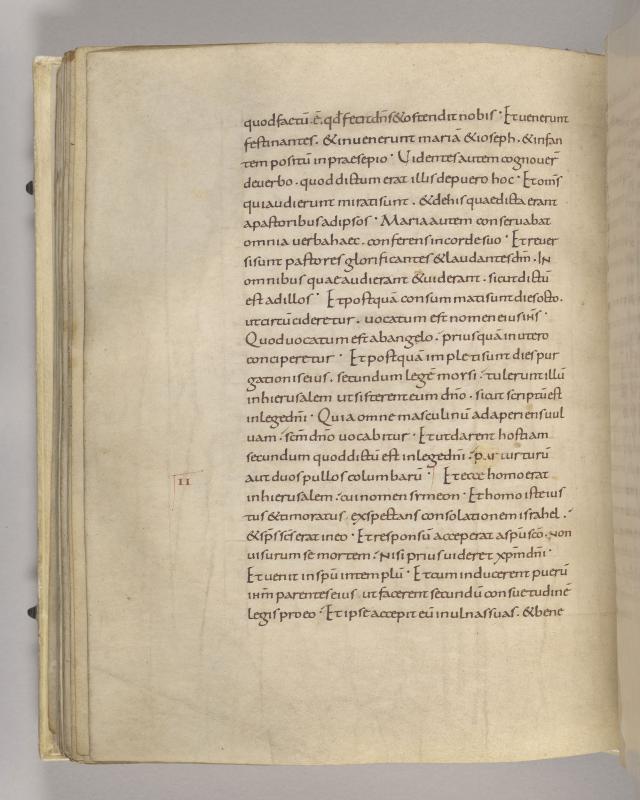 quodfactū ē. qd̄ fecit dn̄s & ostendit nobis · Et uenerunt
festinantes. & inuenerunt mariā & ioseph. & infan
tem positū in praesepio · Uidentes autem cognouer̄
de uerbo. quod dictum erat illis de puero hoc · Et om̄s
qui audierunt mirati sunt. & de his quae dicta erant
a pastoribus ad ipsos · Maria autem conseruabat
omnia uerba haec. conferens in corde suo · Et reuer
si sunt pastores glorificantes & laudantes dm̄. IN
omnibus quae audierant & uiderant. sicut dictū
est ad illos · Et postquā consummati sunt dies octo.
ut circūcideretur. uocatum est nomen eius ih̄s ·
Quod uocatum est ab angelo. priusquā in utero
conciperetur · Et postquā impleti sunt dies pur
gationis eius. secundum legē morsi. tulerunt illū
in hierusalem ut sisterent eum dn̄o. sicut scriptū est
in lege dn̄i · Quia omne masculinū adaperiens uul
uam. scm̄ dn̄o uocabitur · Et ut darent hostiam
secundum quod dictū est in lege dn̄i. par turturū
aut duos pullos columbarū ·
II Et ecce homo erat
in hierusalem. cui nomen symeon · Et homo iste ius
tus & timoratus. exspectans consolationem israhel.
& sp̄s sc̄s erat in eo · Et responsū acceperat a spū sc̄o. non
uisurum se mortem. Nisi prius uideret xp̄m dn̄i ·
Et uenit in spū in templū · Et cum inducerent puerū
ih̄m parentes eius. ut facerent secundū consuetudinē
legis pro eo · Et ipse accepit eū in ulnas suas. & bene